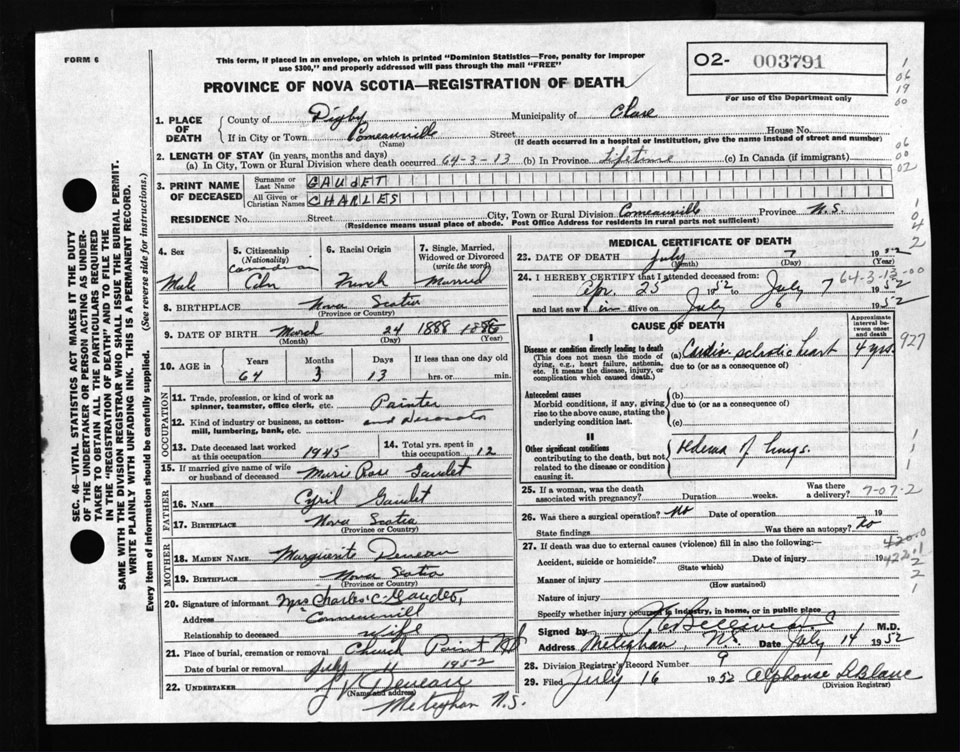 FORM 6
This form, if placed in an envelope, on which is printed "Dominion Statistics—Free, penalty for improper
use $300," and properly addressed will pass through the mail "FREE"
PROVINCE OF NOVA SCOTIA—REGISTRATION OF DEATH
O2- 003791
For use of the Department only
1 06 19 00
06 00 02
1 0 4 2
SEC. 46—VITAL STATISTICS ACT MAKES IT THE DUTY
OF THE UNDERTAKER OR PERSON ACTING AS UNDER-
TAKER TO OBTAIN ALL THE PARTICULARS REQUIRED
IN THE "REGISTRATION OF DEATH" AND TO FILE THE
SAME WITH THE DIVISION REGISTRAR WHO SHALL ISSUE THE BURIAL PERMIT.
WRITE PLAINLY WITH UNFADING INK. THIS IS A PERMANENT RECORD.
Every item of information should be carefully supplied. (See reverse side for instructions.)
1. PLACE OF DEATH
County of Digby Municipality of Clare
If in City or Town Comeauville Street House No.
(Name) (If death occurred in a hospital or institution, give the name instead of street and number)
2. LENGTH OF STAY (in years, months and days)
(a) In City, Town or Rural Division where death occurred 64-3-13 (b) In Province Lifetime (c) In Canada (if immigrant)
3. PRINT NAME OF DECEASED
Surname or Last Name GAUDET
All Given or Christian Names CHARLES
RESIDENCE No. Street City, Town or Rural Division Comeauville Province N.S.
(Residence means usual place of abode. Post Office Address for residents in rural parts not sufficient)
4. Sex
Male
5. Citizenship (Nationality)
Canadian
Cdn
6. Racial Origin
French
7. Single, Married, Widowed or Divorced (write the word)
Married
8. BIRTHPLACE Nova Scotia
(Province or Country)
9. DATE OF BIRTH March 24 1888
(Month) (Day) (Year)
10. AGE in Years Months Days If less than one day old
64 3 13 hrs. or min.
OCCUPATION
11. Trade, profession, or kind of work as spinner, teamster, office clerk, etc. Painter
12. Kind of industry or business, as cotton-mill, lumbering, bank, etc. and Decorator
13. Date deceased last worked at this occupation 1945
14. Total yrs. spent in this occupation 12
15. If married give name of wife or husband of deceased Mari Rose Gaudet
FATHER
16. NAME Cyril Gaudet
17. BIRTHPLACE Nova Scotia
(Province or Country)
MOTHER
18. MAIDEN NAME Marguerite Deveau
19. BIRTHPLACE Nova Scotia
(Province or Country)
20. Signature of informant Mrs Charles C. Gaudet,
Address Comeauvill
Relationship to deceased wife
21. Place of burial, cremation or removal Church Point NS
Date of burial or removal July 1952
22. UNDERTAKER Deveau
(Name and address)
Meteghan N.S.
MEDICAL CERTIFICATE OF DEATH
23. DATE OF DEATH July 7 1952
(Month) (Day)
64-3-13-00
24. I HEREBY CERTIFY that I attended deceased from:
Apr. 25 1952 to July 7 1952
and last saw h im alive on July 6 1952
CAUSE OF DEATH
Approximate interval between onset and death
I
Disease or condition directly leading to death
(This does not mean the mode of dying, e.g., heart failure, asthenia, etc. It means the disease, injury, or complication which caused death.)
(a) Cardio sclrotic heart 4 yrs.
927
due to (or as a consequence of)
Antecedent causes
Morbid conditions, if any, giving rise to the above cause, stating the underlying condition last.
(b)
due to (or as a consequence of)
(c)
II
Other significant conditions contributing to the death, but not related to the disease or condition causing it.
Oedema of lungs.
1
1
1
25. If a woman, was the death associated with pregnancy? Duration weeks. Was there a delivery?
7-07-2
26. Was there a surgical operation? No Date of operation 19
State findings Was there an autopsy? No
27. If death was due to external causes (violence) fill in also the following:—
420.0
Accident, suicide or homicide? Date of injury 19
422.1
(State which)
2
2
1
Manner of injury
(How sustained)
Nature of injury
Specify whether injury occurred in industry, in home, or in public place
Signed by Belliveau M.D.
Address Meteghan, N.S. Date July 14 1952
28. Division Registrar's Record Number 9
29. Filed July 16 1952 Alphonse LeBlanc
(Division Registrar)